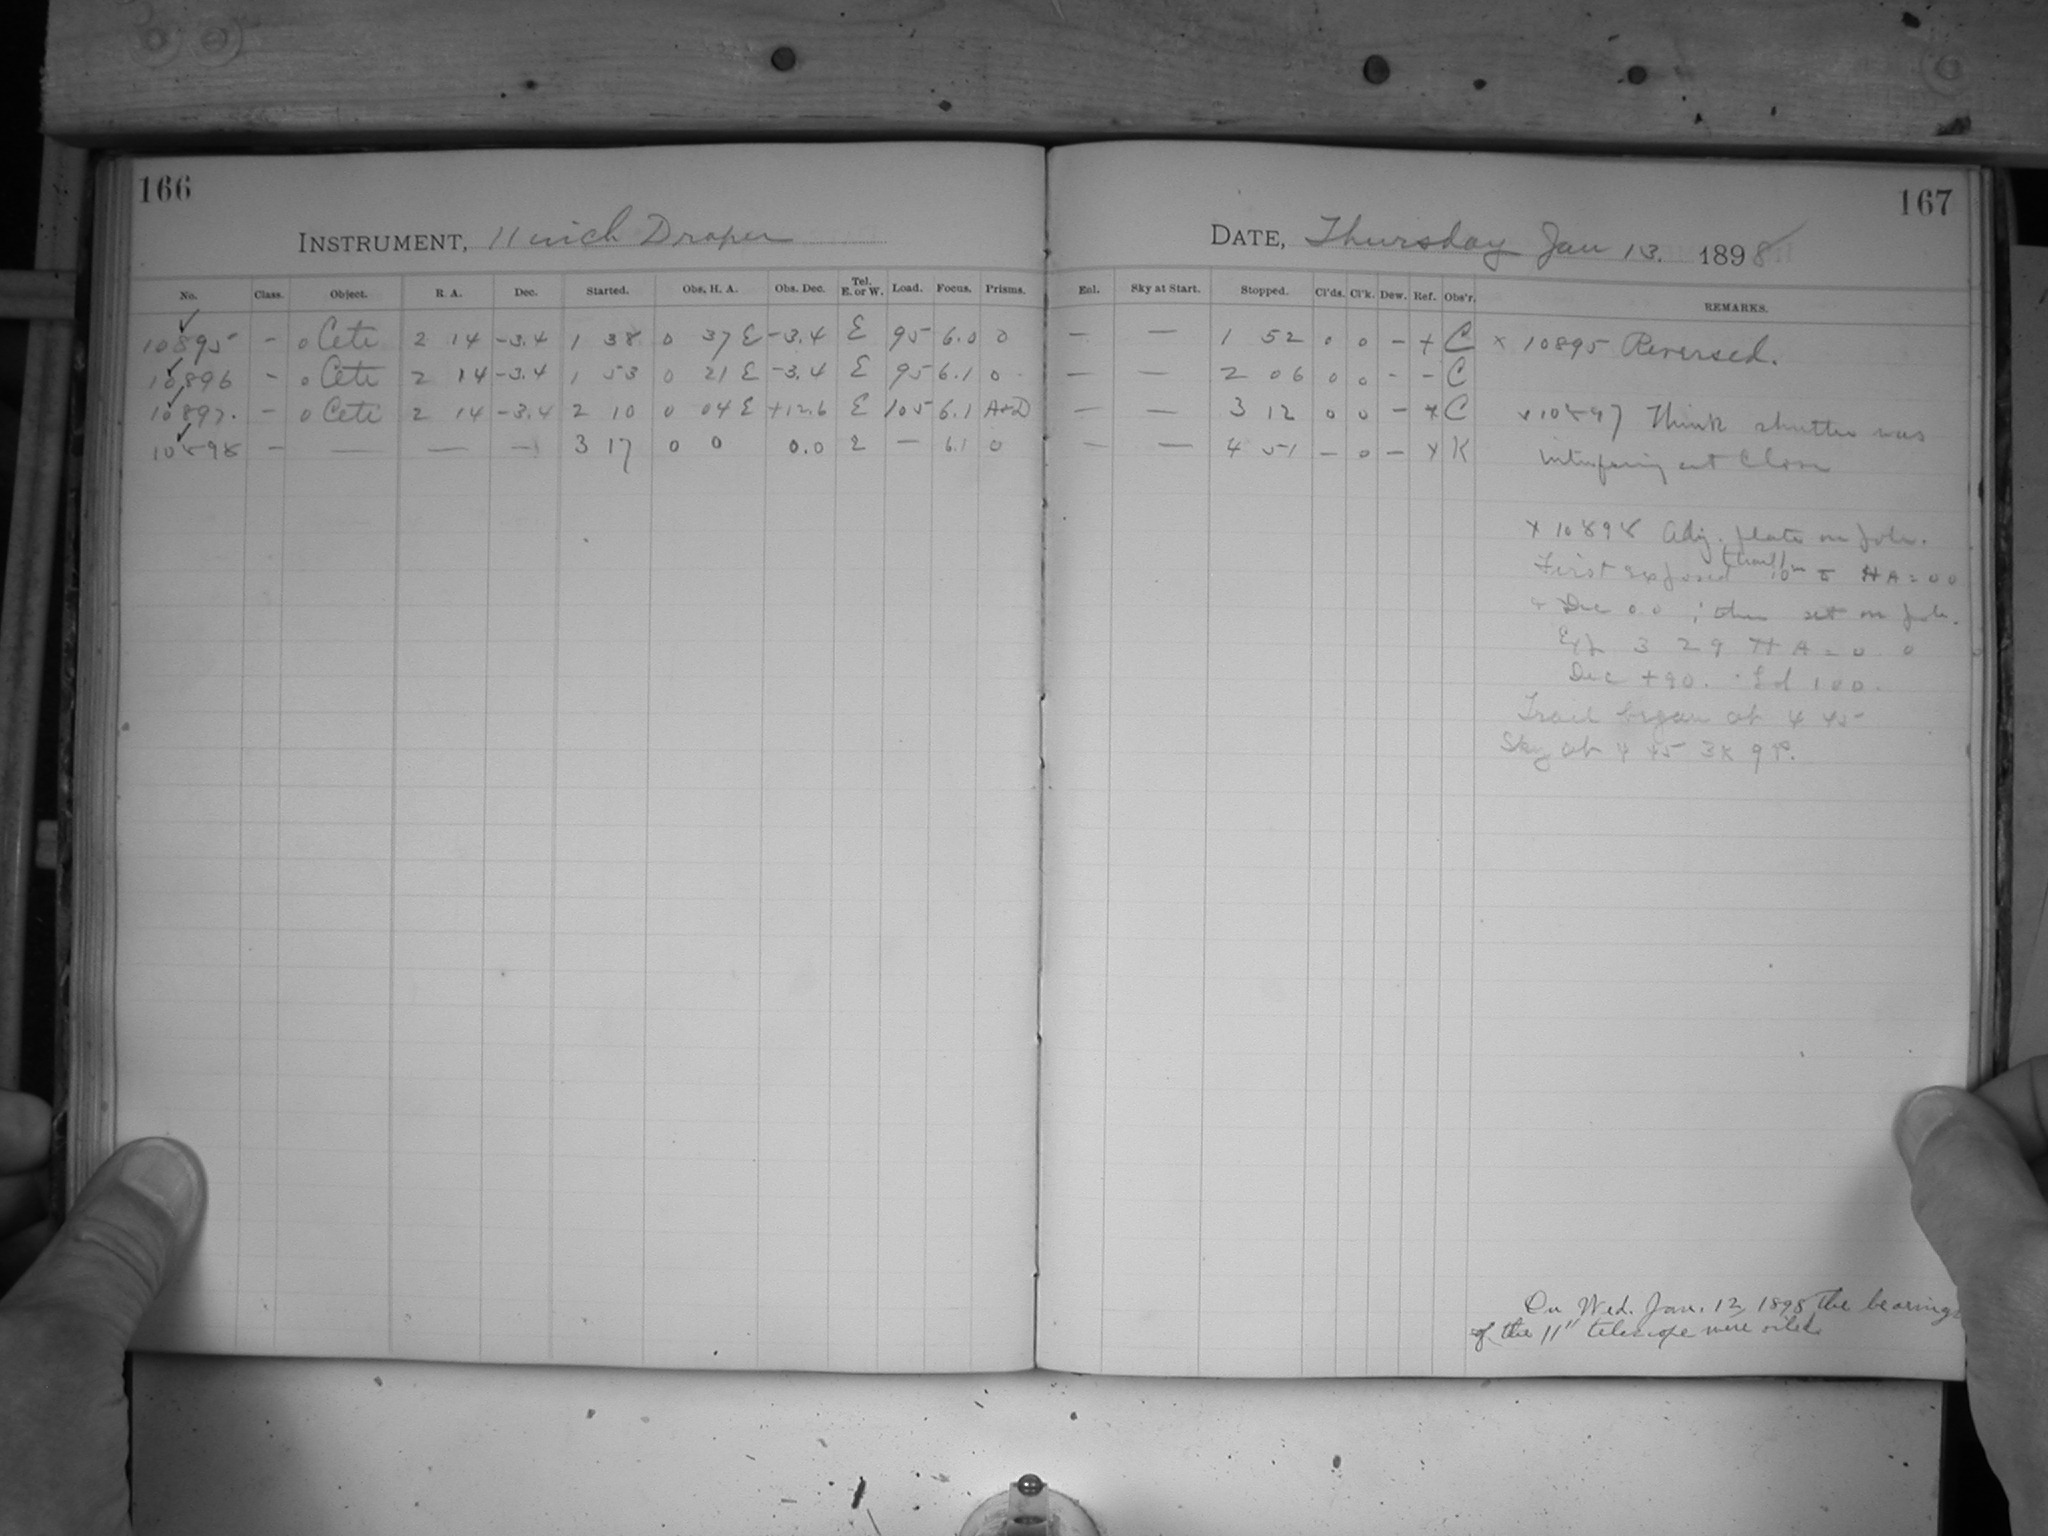 166
INSTRUMENT, 11 inch Draper
No. Class. Object. R. A. Dec. Started. Obs. H. A. Obs. Dec. Tel. E. or W. Load. Focus. Prisms.
10895 - o Ceti 2 14 -3.4 1 38 0 37 E -3.4 E 95 6.0 0
10896 - o Ceti 2 14 -3.4 1 53 0 21 E -3.4 E 95 6.1 0
10897. - o Ceti 2 14 -3.4 2 10 0 04 E +12.6 E 105 6.1 A+D
10898 - — — — 3 17 0 0 0.0 E — 6.1 0
167
DATE, Thursday Jan 13. 1898
Enl. Sky at Start. Stopped. Cl'ds. Cl'k. Dew. Ref. Obs'r. REMARKS.
— — 1 52 0 0 - + C x 10895 Reversed.
— — 2 06 0 0 - - C
— — 3 12 0 0 - x C x 10897 Think shutter was
— — 4 51 — 0 — x K
x 10898 Adj. plate on pole.
First exposed 10m HA = 0 0
Dec 0 0 ; then set on pole.
Exp 3 29 H A = 0 0
Dec +90. Ld 100.
Trail began at 4 45
Sky at 4 45
On Wed. Jan. 12, 1898 the bearings
of the 11" telescope were oiled.